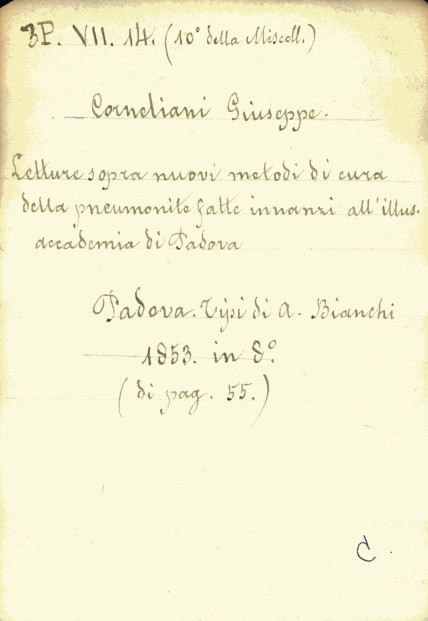 3P. VII. 14. (10° della Miscell.)
Corneliani Giuseppe.
Letture sopra nuovi metodi di cura
della pneumonite fatte innanzi all'illus.
accademia di Padova
Padova. Tipi di A. Bianchi
1853. in 8°.
(di pag. 55.)
C.